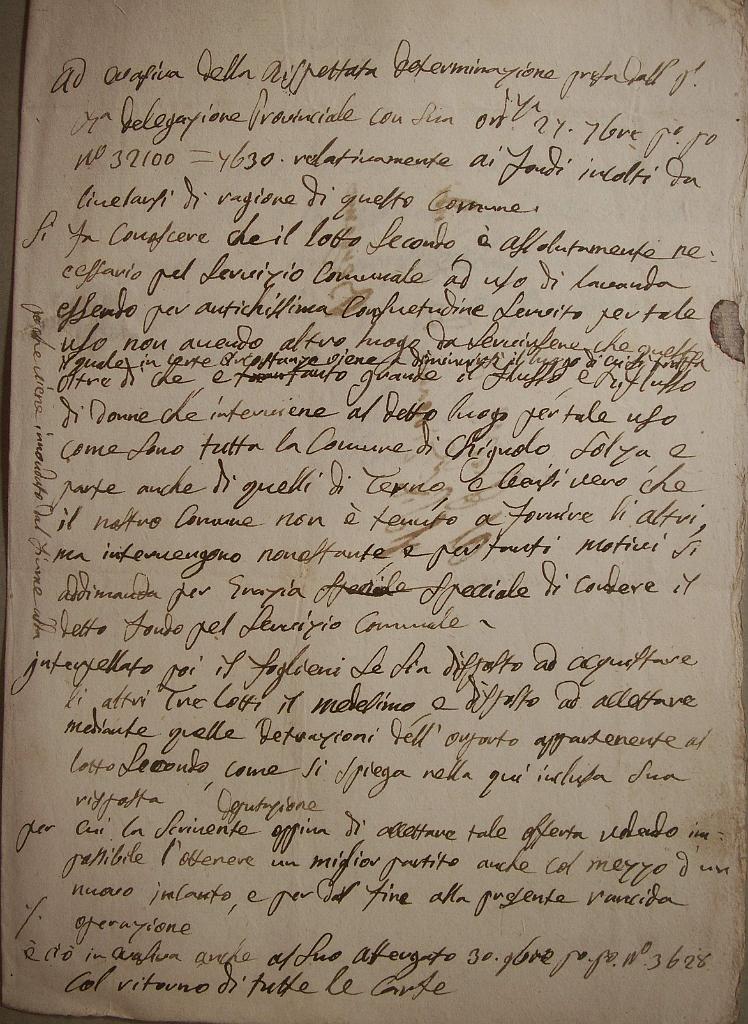 Ad evasiva della Rispettata Determinazione presa dall'
Delegazione Provinciale con Sua 27. 7bre po. po
N° 32100 = 7630. relativamente ai fondi incolti da
livelarsi di ragione di questo Comune.
Si fa Conoscere che il lotto Secondo, è Assolutamente ne:
cessario pel Servizio Comunale ad uso di lavanda
essendo per antichissima Consuetudine Servito per tale
uso non avendo altro luogo da servirsene che questo
il quale in certe Circostanze viene a diminuirsi il luogo di
oltre di che è tanto grande il flusso e Riflusso
di Donne che interviene al detto luogo per tale uso
come Sono tutta la Comune di Chignolo Solza e
parte anche di quelli di Terno, e bensì vero che
il nostro Comune non è tenuto a fornire li altri,
ma intervengono nonostante e per tanti motivi Si
addimanda per Grazia Speciale Specciale di Condere il
detto fondo pel Servizio Comunale
perche viene innondato dal fiume
interpellato poi il Foglieni Se Sia disposto ad acquistare
li altri Tre Lotti il medesimo, e disposto ad accettare
mediante quelle detrazioni dell' importo appartenente al
lotto Secondo come Si Spiega nella qui inclusa Sua
risposta
Deputazione
per cui la Scrivente oppina di accettare tale offerta vedendo im=
possibile l'ottenere un miglior partito anche col mezzo d'un
nuovo incanto, e per dar fine alla presente rancida
operazione
è ciò in evasiva anche al Suo attergato 30. 9bre po. po. N° 3628
Col ritorno di tutte le Carte